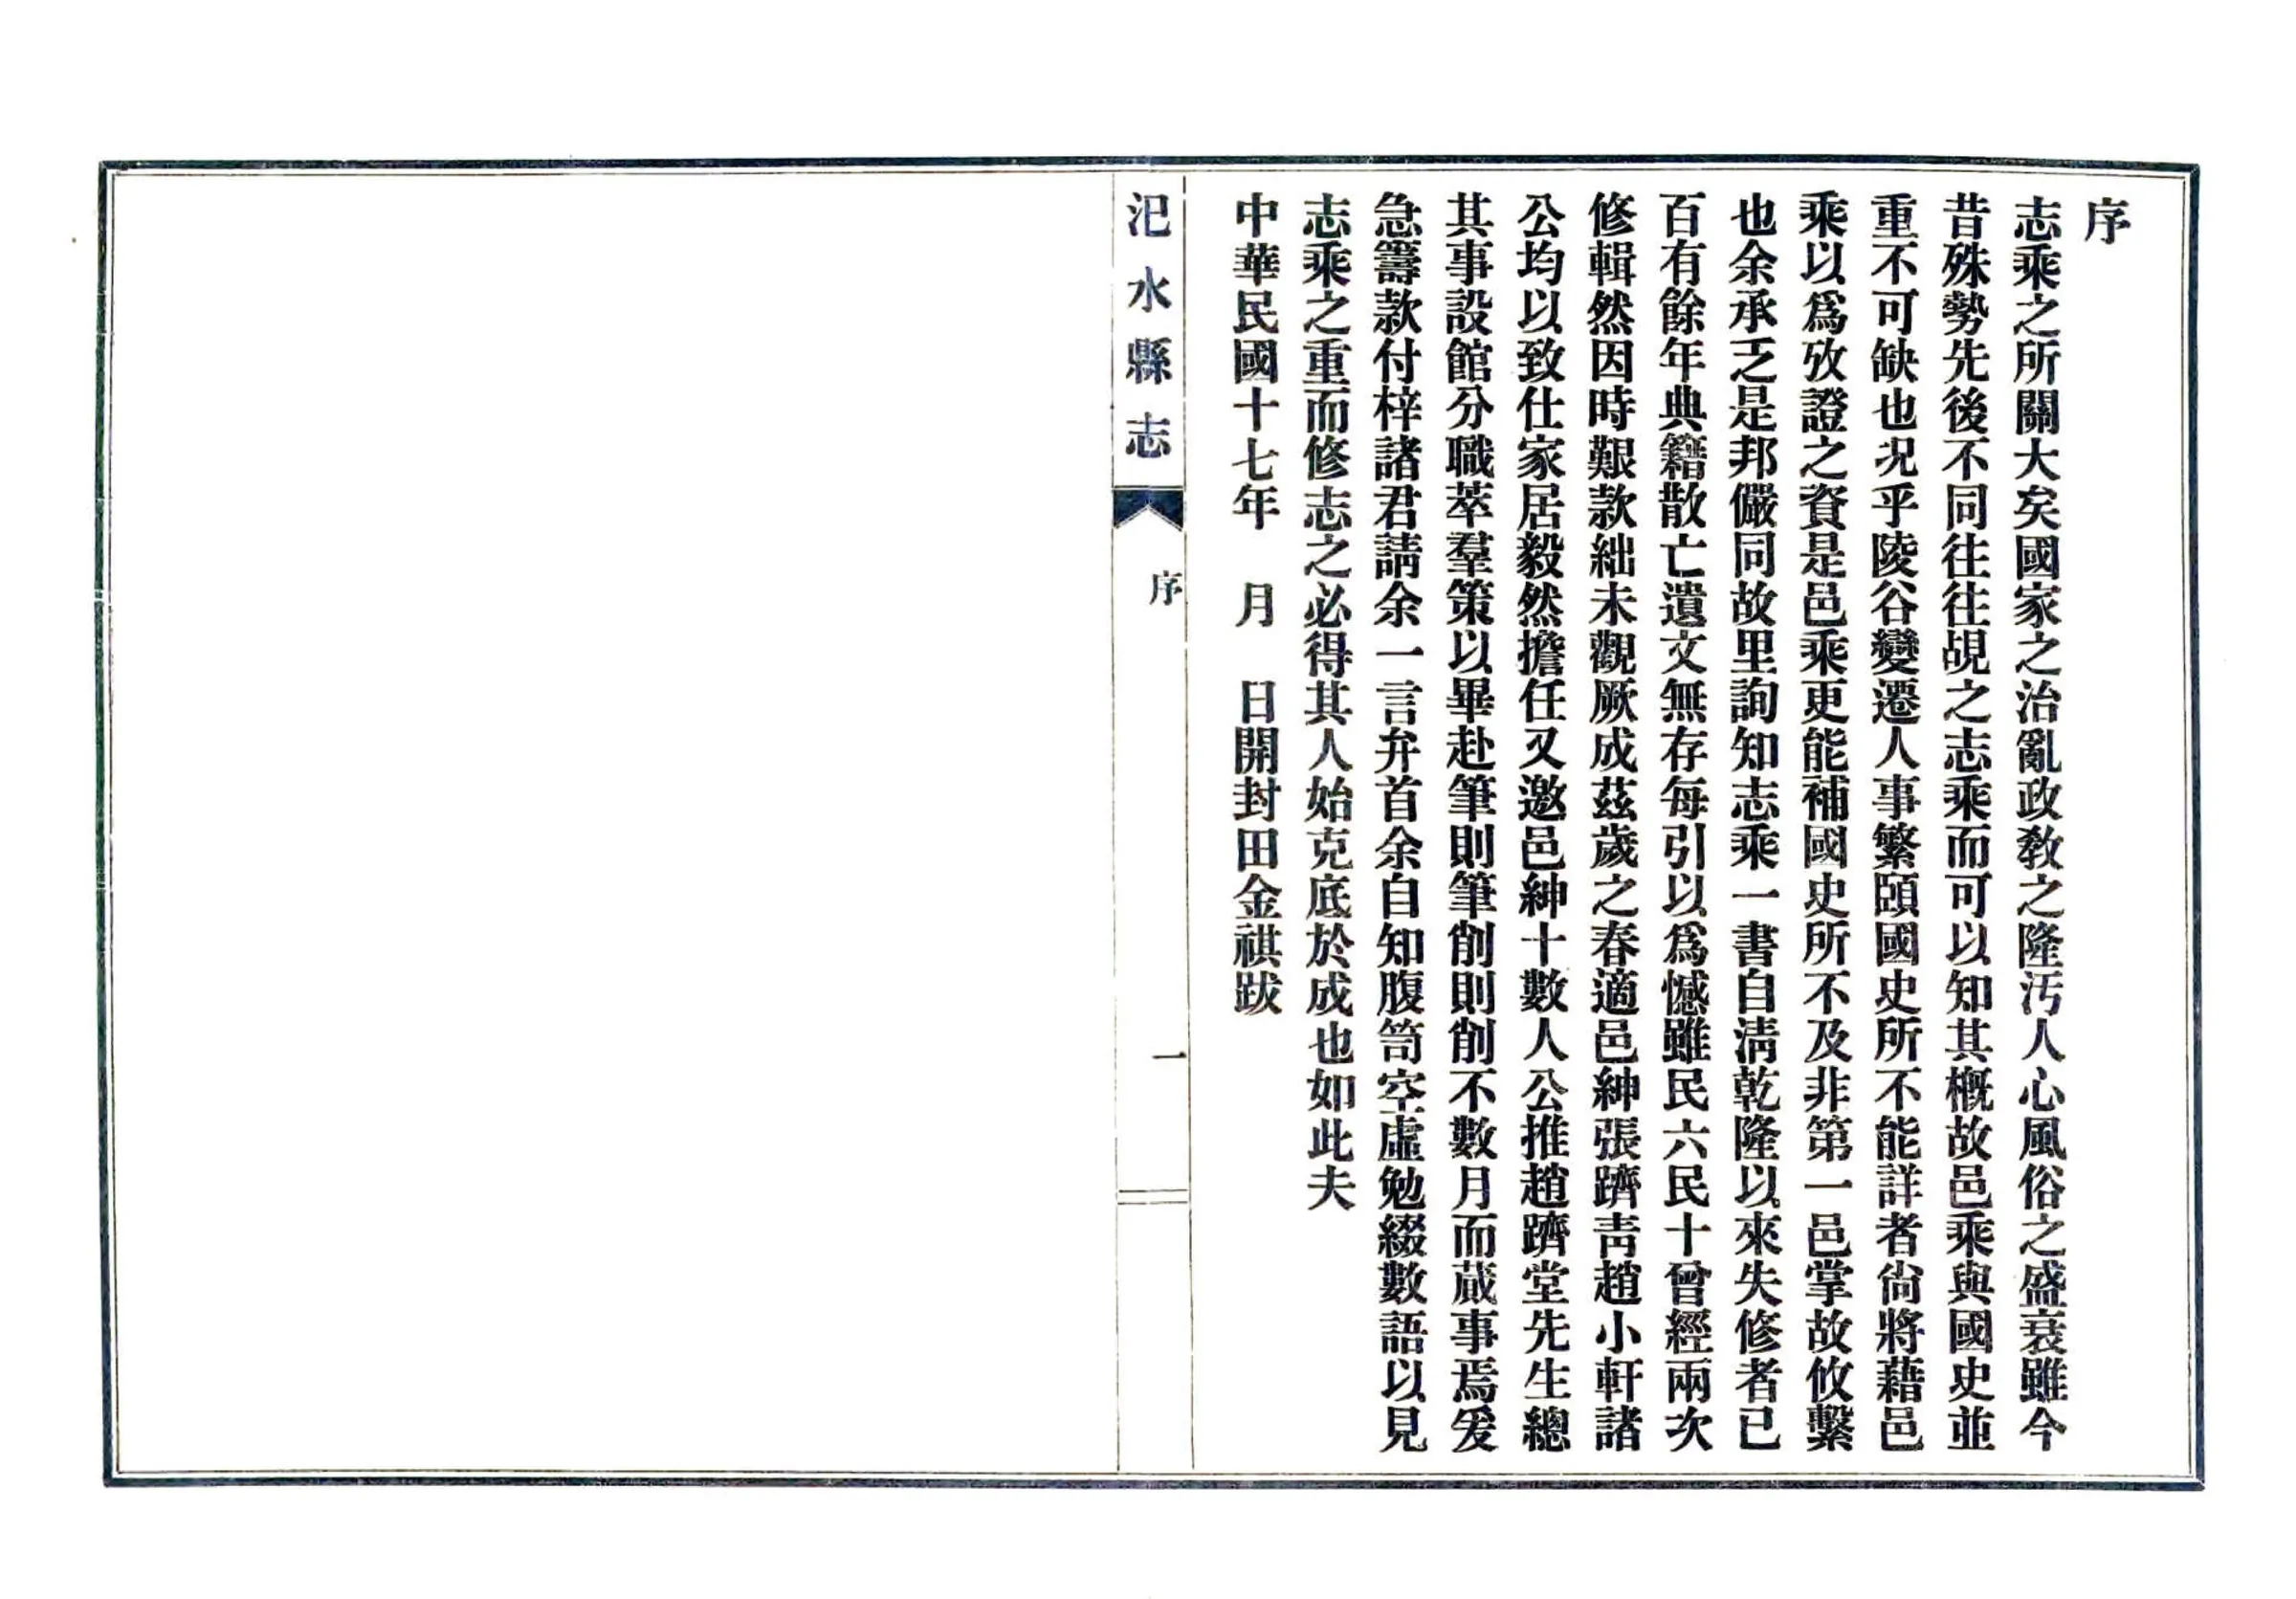 序
志乘之所關大矣國家之治亂政敎之隆汚人心風俗之盛衰雖今
昔殊勢先後不同往往覘之志乘而可以知其槪故邑乘與國史並
重不可缺也況乎陵谷變遷人事繁頤國史所不能詳者尙將藉邑
乘以爲攷證之資是邑乘更能補國史所不及非第一邑掌故攸繫
也余承乏是邦儼同故里詢知志乘一書自淸乾隆以來失修者已
百有餘年典籍散亡遺文無存每引以爲憾雖民六民十曾經兩次
修輯然因時艱款絀未觀厥成茲歲之春適邑紳張躋靑趙小軒諸
公均以致仕家居毅然擔任又邀邑紳十數人公推趙躋堂先生總
其事設館分職萃羣策以畢赴筆則筆削則削不數月而蕆事焉爰
急籌款付梓諸君請余一言弁首余自知腹笥空虛勉綴數語以見
志乘之重而修志之必得其人始克底於成也如此夫
中華民國十七年　月　日開封田金祺跋
汜水縣志
序
一